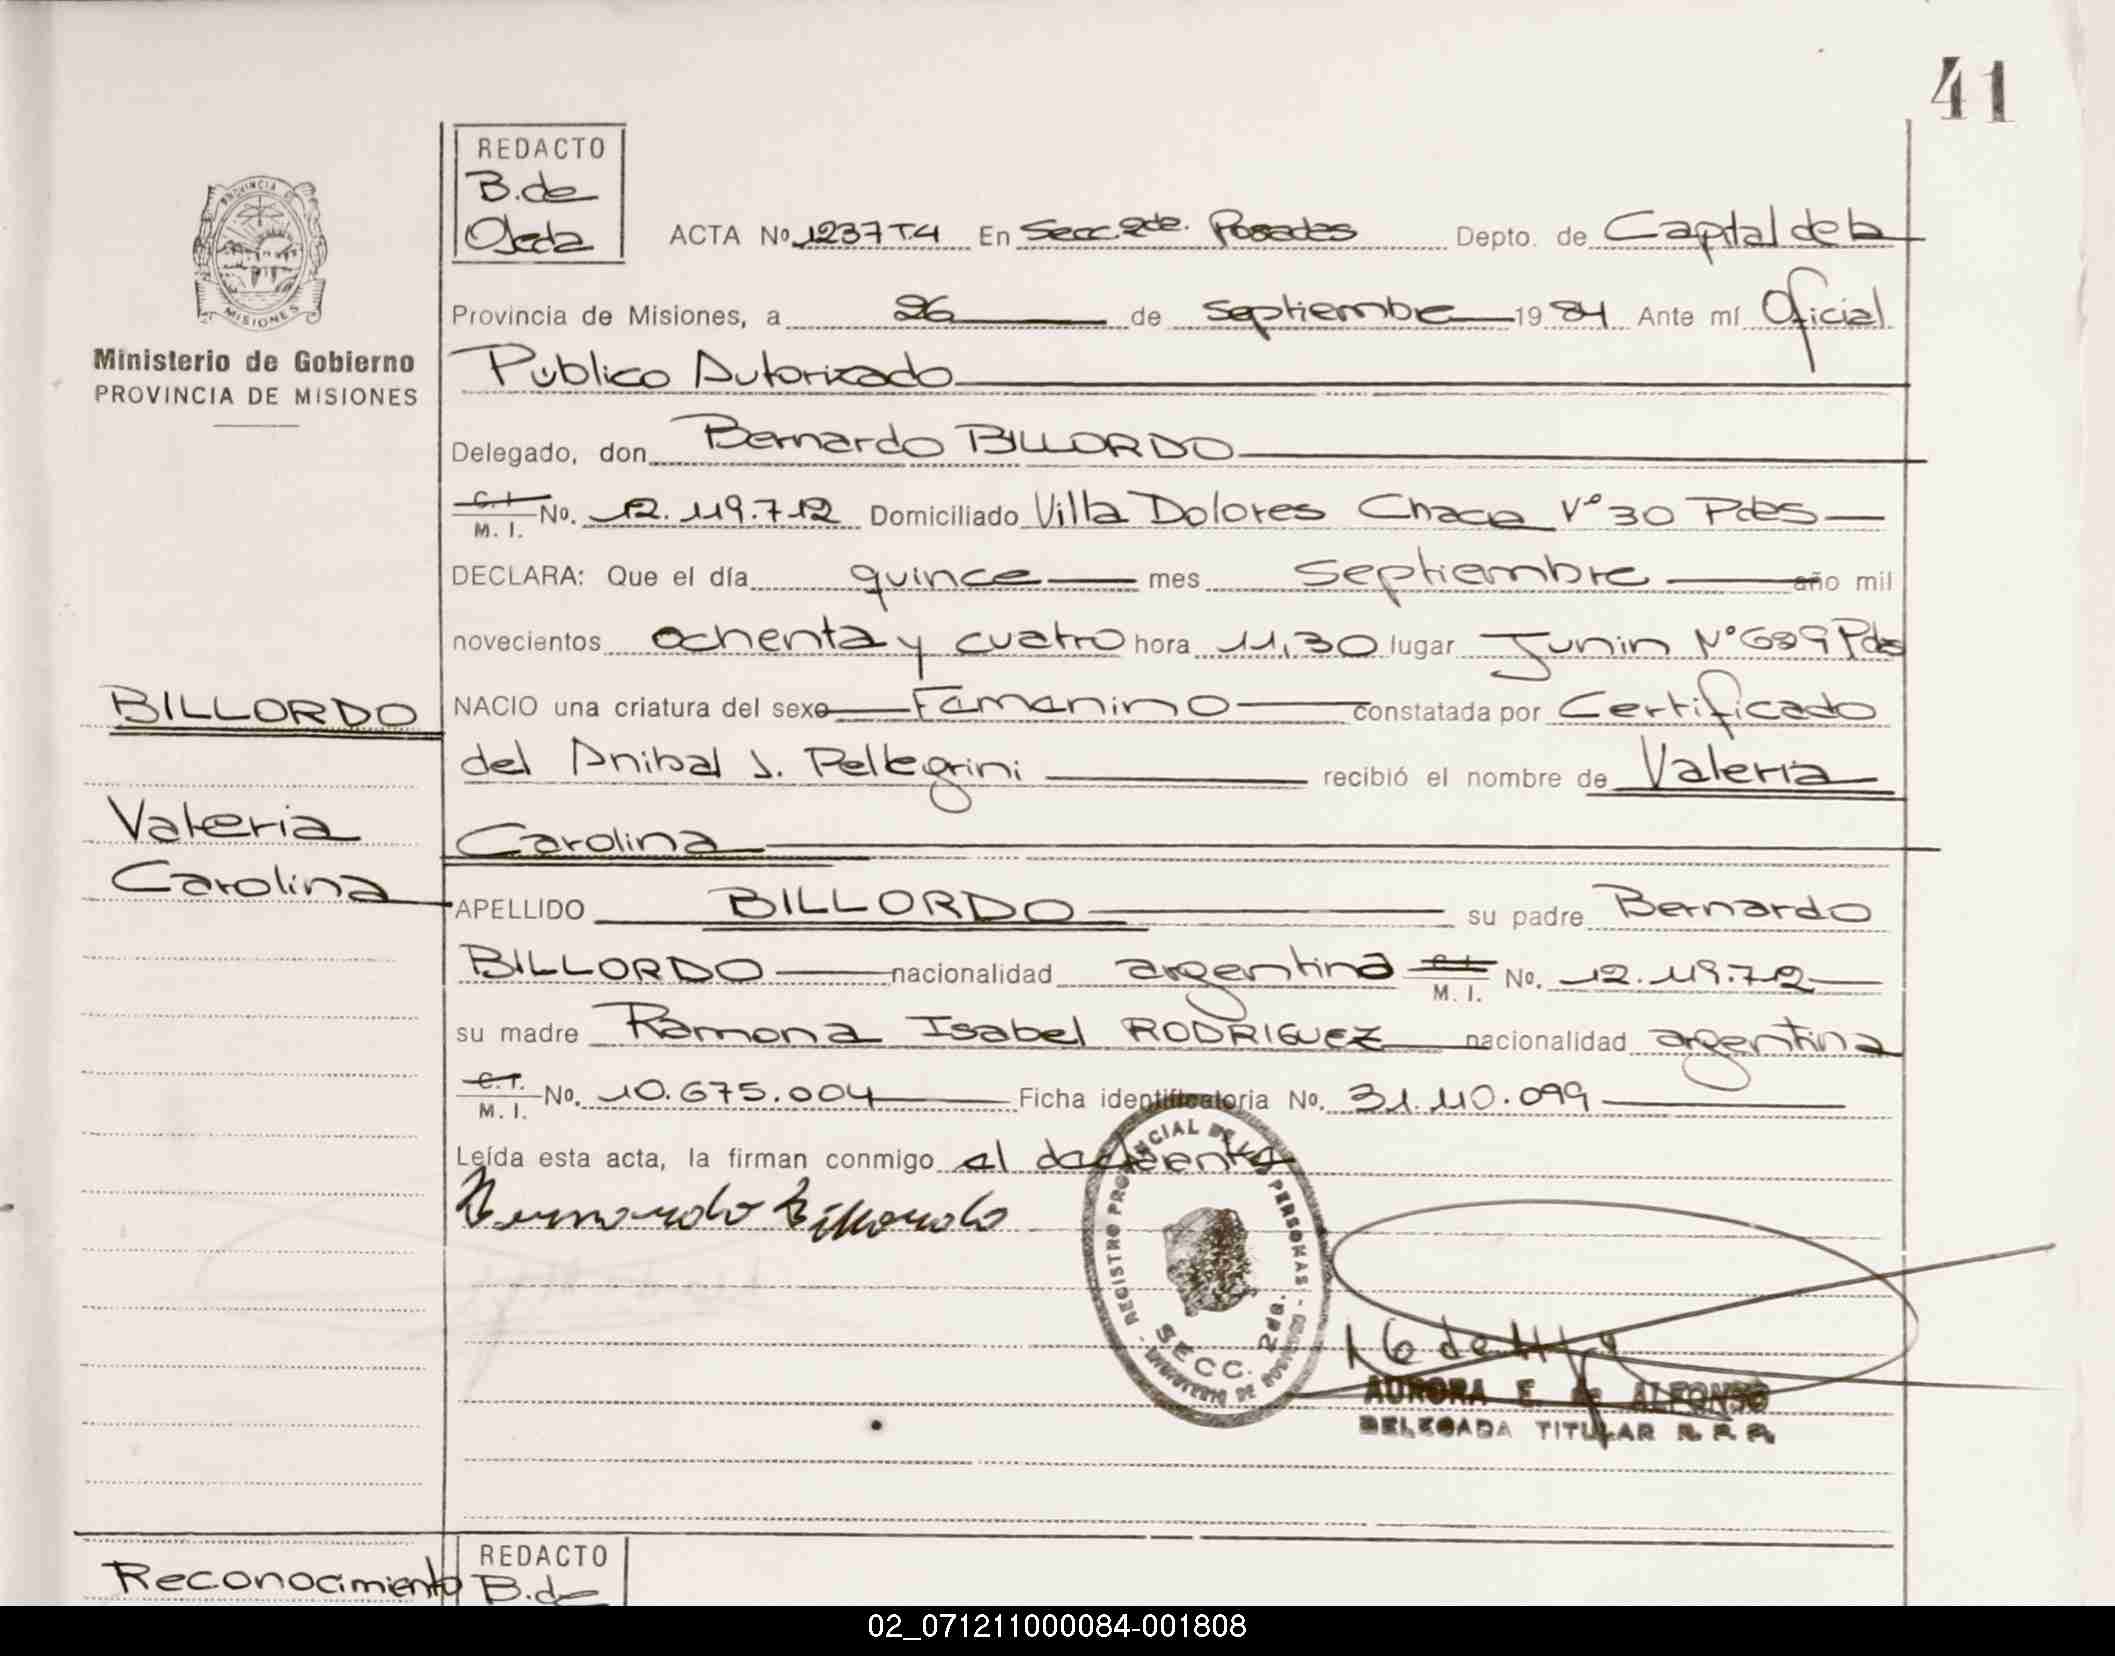 41
REDACTO
B. de
Ojeda
ACTA Nº 1237 T.4 En Secc. 2da. Posadas Depto. de Capital de la
Provincia de Misiones, a 26 de septiembre 1984 Ante mí Oficial
Ministerio de Gobierno
PROVINCIA DE MISIONES
Público Autorizado
Delegado, don Bernardo BILLORDO
C. I.
M. I. No. 12.119.712 Domiciliado Villa Dolores Chaca Nº 30 Pdas
DECLARA: Que el día quince mes septiembre año mil
novecientos ochenta y cuatro hora 11,30 lugar Junin Nº 689 Pdas
BILLORDO
NACIO una criatura del sexo Famanino constatada por Certificado
del Anibal J. Pellegrini recibió el nombre de Valeria
Valeria
Carolina
Carolina
APELLIDO BILLORDO su padre Bernardo
BILLORDO nacionalidad argentina C. I.
M. I. No. 12.119.712
su madre Ramona Isabel RODRIGUEZ nacionalidad argentina
C. I.
M. I. No. 10.675.004 Ficha identificatoria No. 31.110.099
Leída esta acta, la firman conmigo el
Bernardo Billordo
REGISTRO PROVINCIAL DE LAS PERSONAS
MINISTERIO DE GOBIERNO
SECC. 2da.
AURORA E. de ALFONSO
DELEGADA TITULAR R. P. P.
Reconocimiento
REDACTO
B. de
PROVINCIA DE
MISIONES
02_071211000084-001808